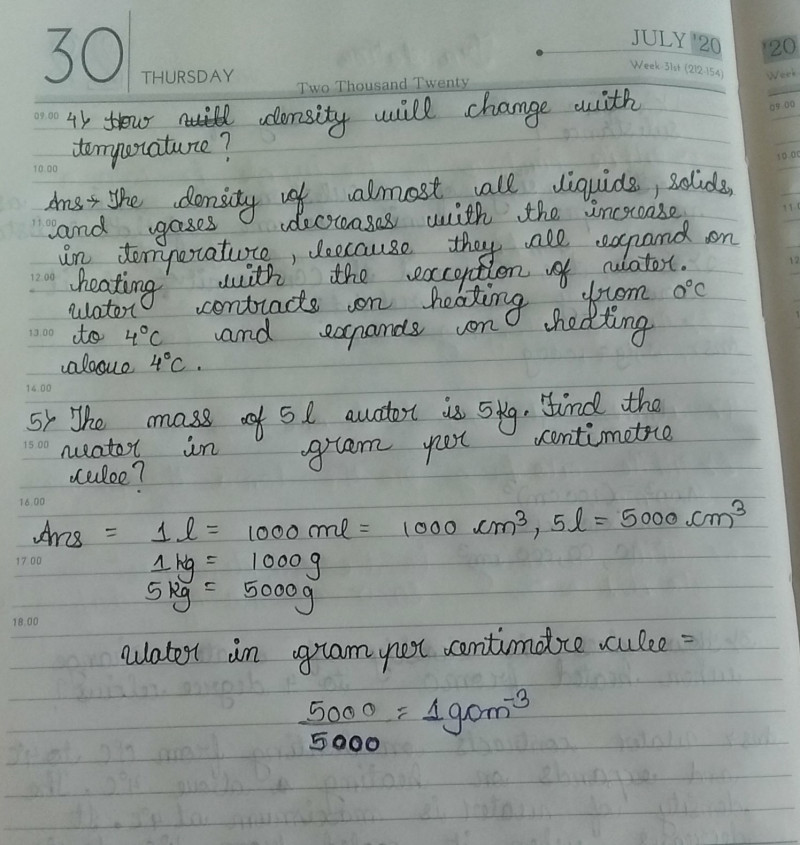 30 THURSDAY Two Thousand Twenty JULY '20 '20
Week 31st (212-154) Week
09.00 4) How will density will change with 09.00
temperature?
10.00 10.00
Ans → The density of almost all liquids, solids,
11.00 and gases decreases with the increase
in temperature, because they all expand on
12.00 heating with the exception of water.
water contracts on heating from 0°C
13.00 to 4°C and expands on heating
above 4°C.
14.00
5) The mass of 5 l water is 5 kg. Find the
15.00 water in gram per centimetre
cube?
16.00
Ans = 1 l = 1000 ml = 1000 cm³, 5 l = 5000 cm³
17.00 1 kg = 1000 g
5 kg = 5000 g
18.00
Water in gram per centimetre cube =
5000 = 1 g cm⁻³
5000